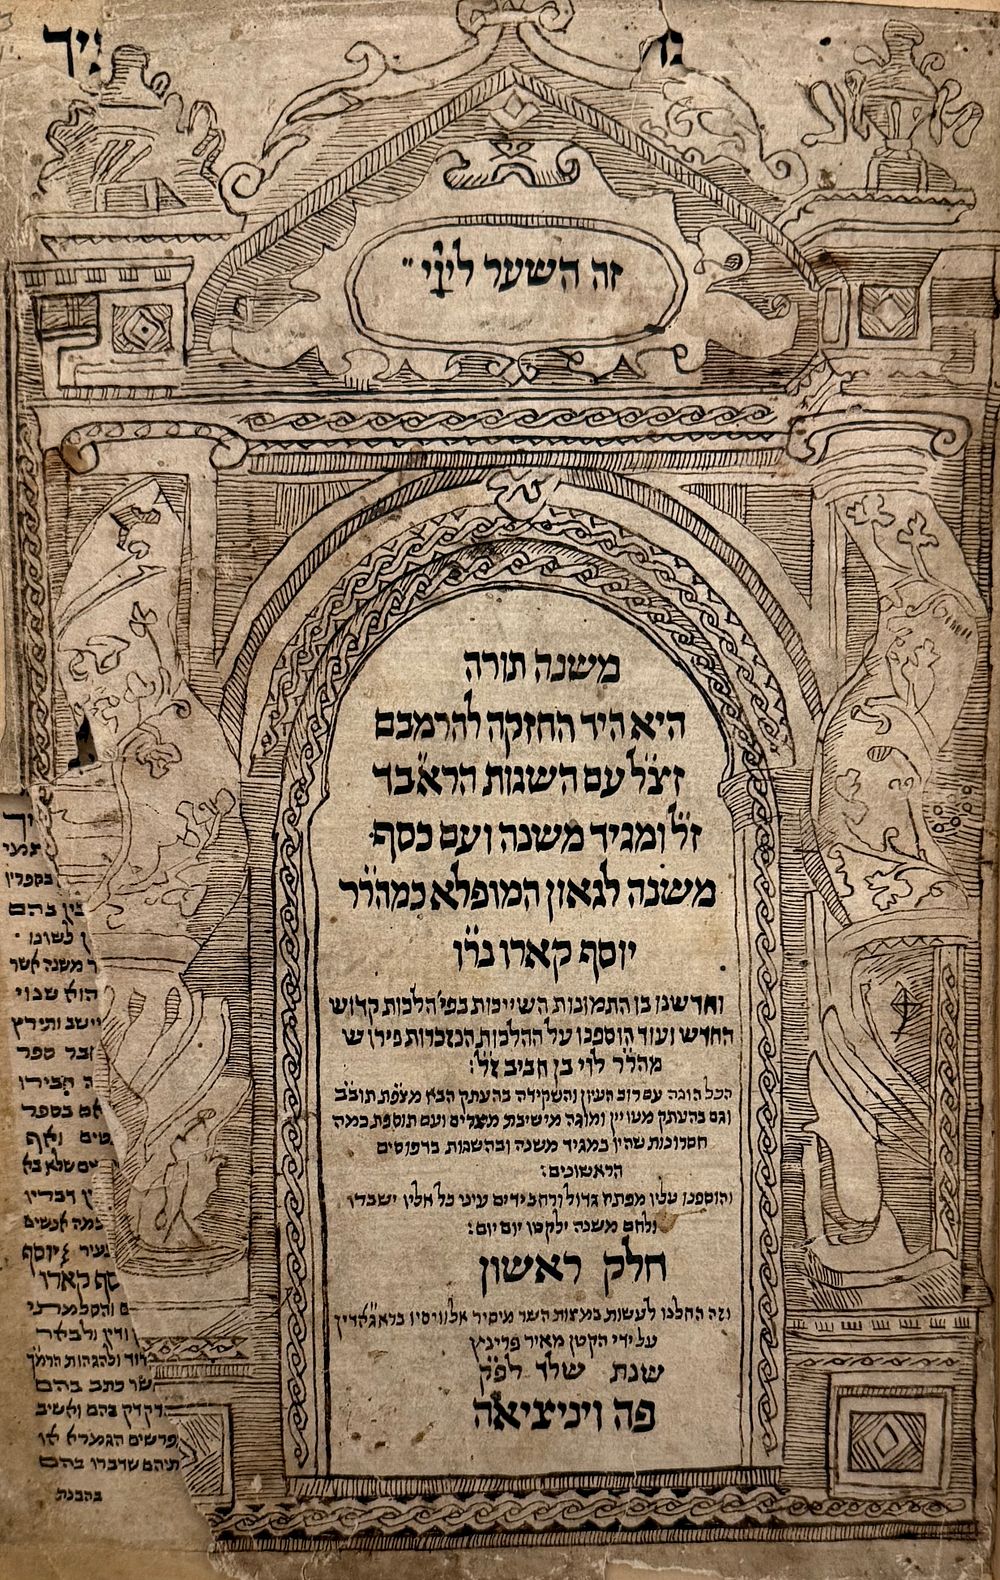 זה השער לייי
משנה תורה
היא היד החזקה להרמבם
זצ״ל עם השגות הראבד
ז״ל ומגיד משנה ועם כסף
משנה לגאון המופלא כמהרר
יוסף קארו נרו
וחדשנו בו התמונות השייכות בפי׳ הלכות קדוש
החדש ועוד הוספנו על ההלכות הנזכרות פירוש
מהלר לוי בן חביב זל׃
הכל הוגה עם רוב העיון והשקידה בהעתק הבא מצפת תובב
וגם בהעתק מעויין ומוגה מישיבת מצרים ועם תוספת כמה
חסרונות שהיו במגיד משנה ובהשגות בדפוסים
הראשונים׃
והוספנו עליו מפתח גדול ורחב ידים עיני כל אליו ישברו
ולחם משנה ילקטו יום יום׃
חלק ראשון
וזה החלנו לעשות במצות השר מיסיר אלוויסיו בראגאדין
על ידי הקטן מאיר פרינץ
שנת שלד לפק
פה ויניציאה
בספרין
בין בהם
לשונו
משנה אשר
הוא שנוי
יישב ותירץ
ספר
חבירו
בספר
ואף
שלא בא
דבריו
כמה אנשים
יוסף
קארו
ודין ולבאר
ולהגהות הרמך
כתב בהם
דקדק בהם ואשיב
פרשים הגמרא או
שדברו בהם
בהבנת